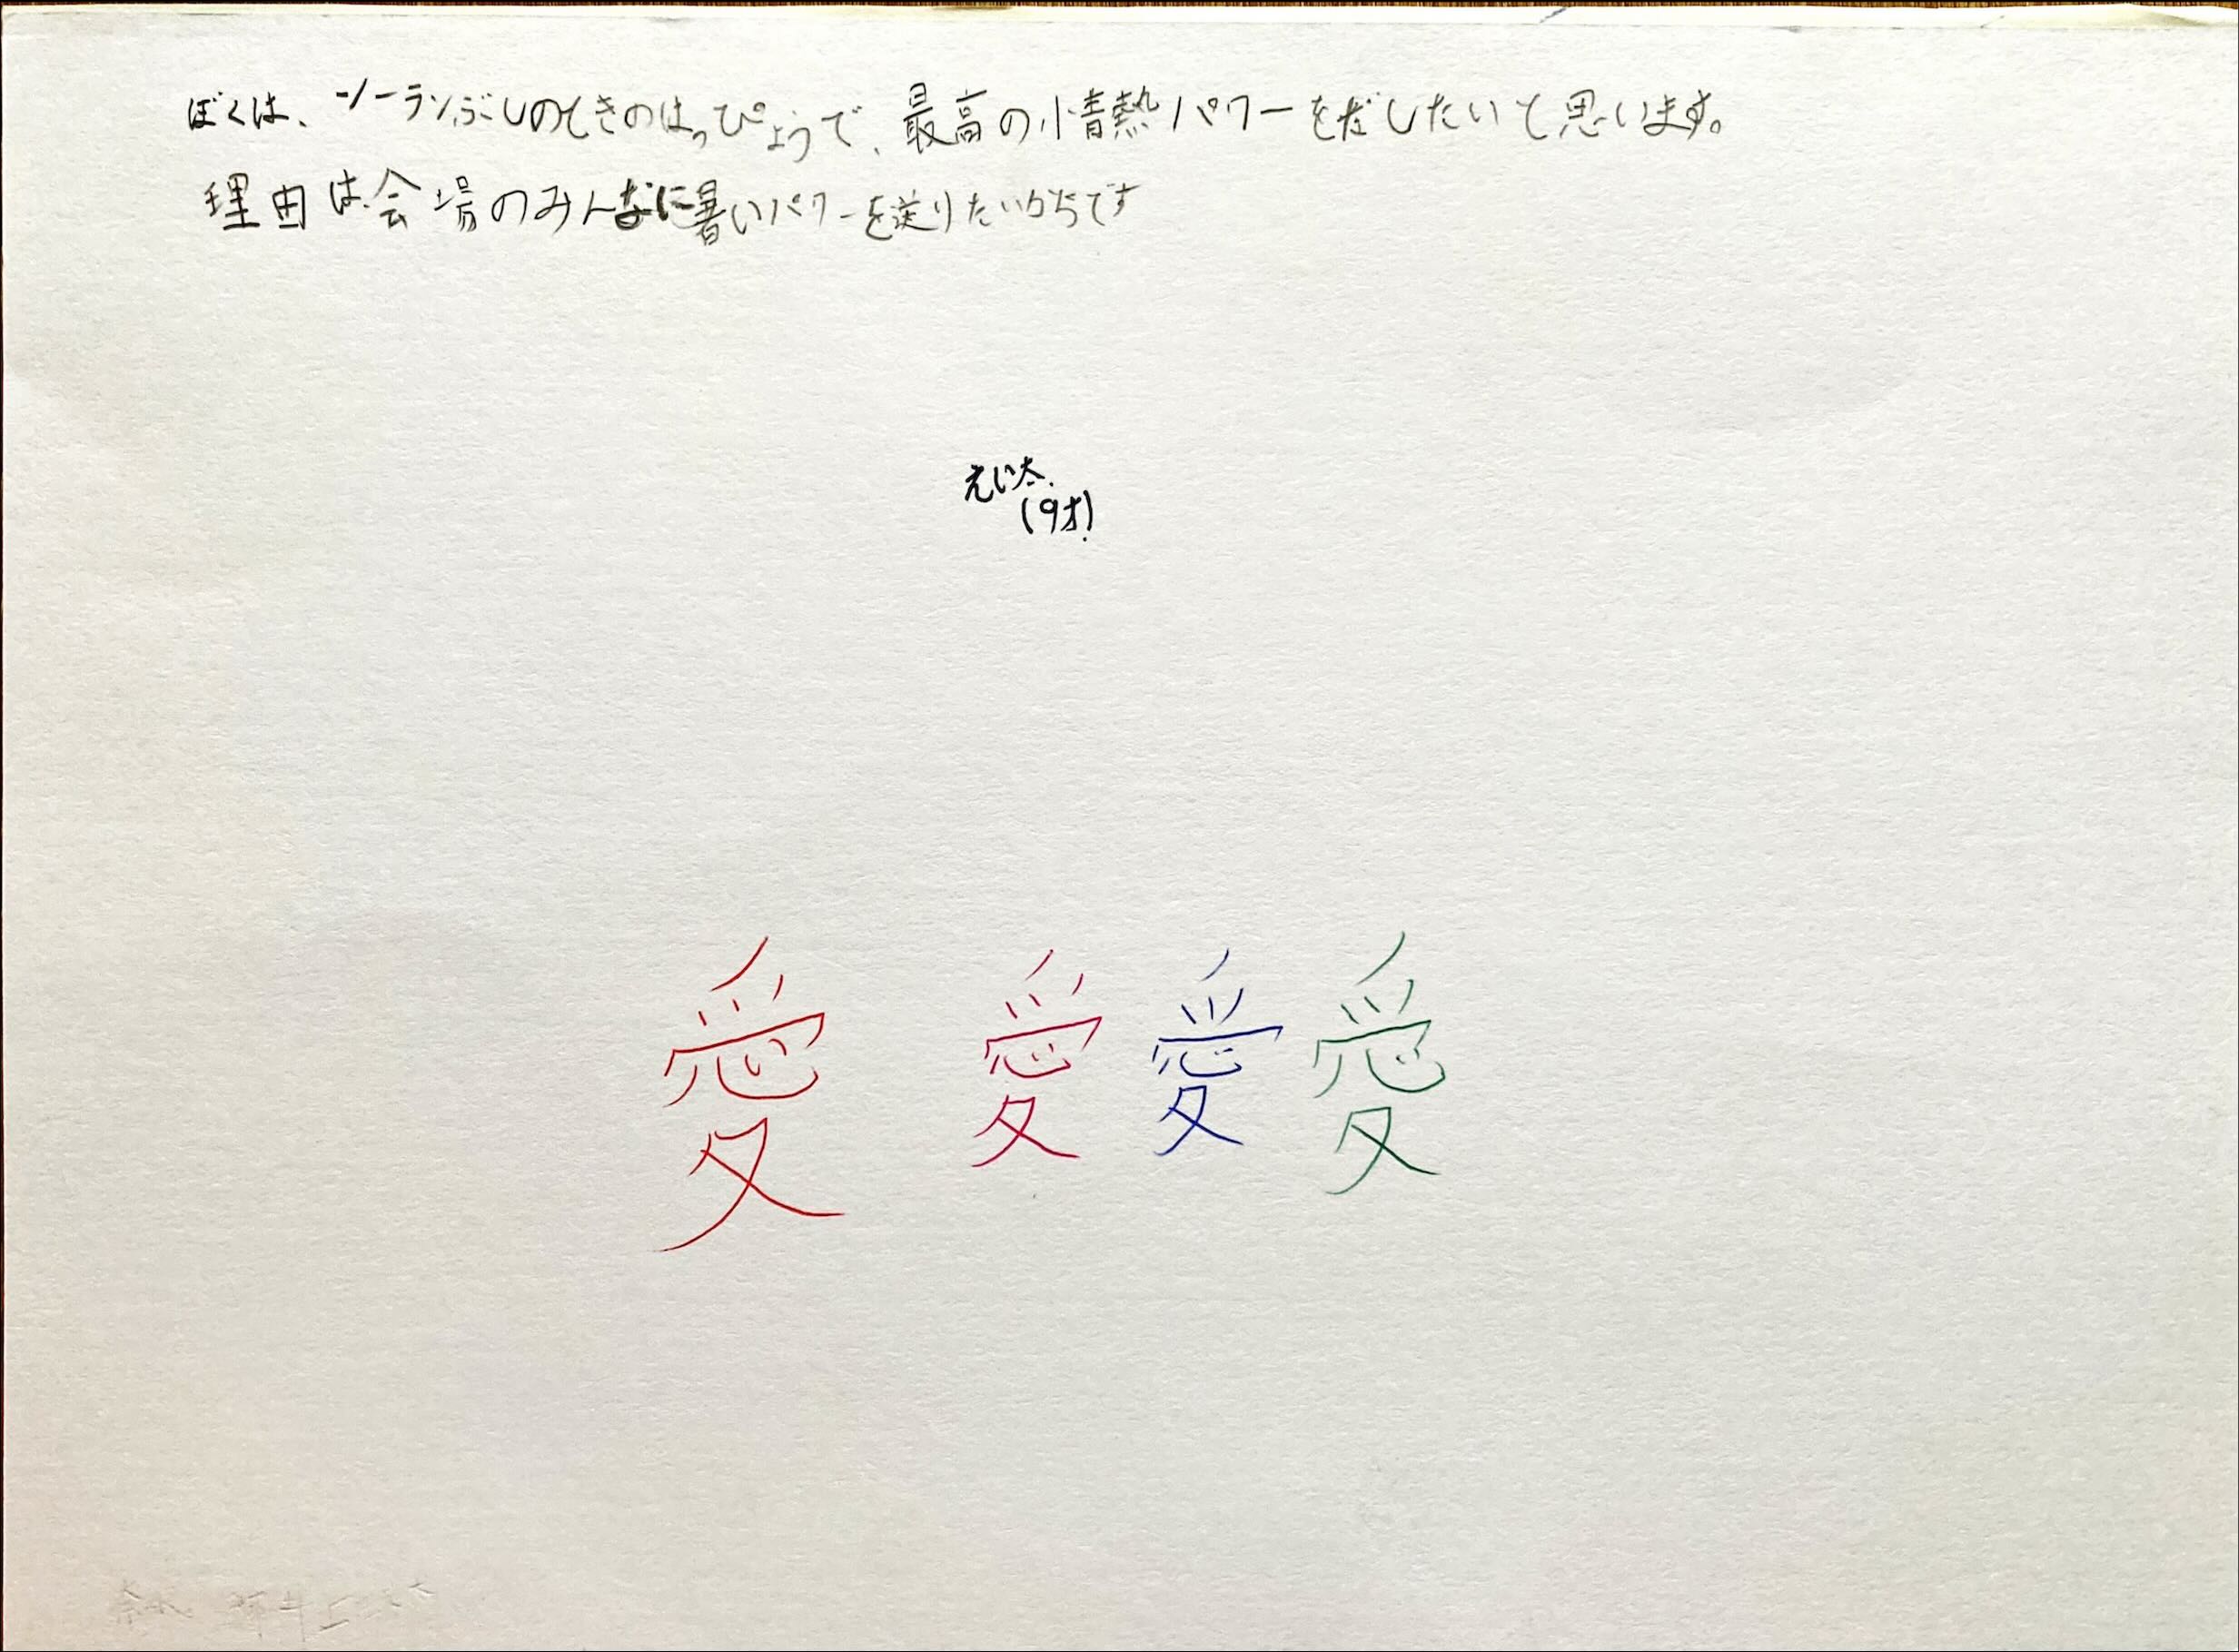 ぼくは、ソーランぶしのときのはっぴょうで、最高の情熱パワーをだしたいと思います。
理由は会場のみんなに暑いパワーを送りたいからです
えい太
(9才)
愛 愛 愛 愛